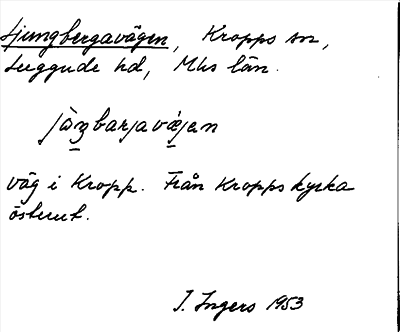 Ljungbergavägen, Kropps sn,
Luggude hd, Mhs län.
väg i Kropp. Från Kropps kyrka
österut.
I. Ingers 1953